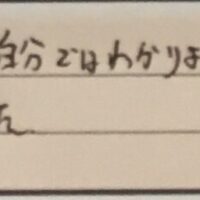 自分ではわかりま
ん